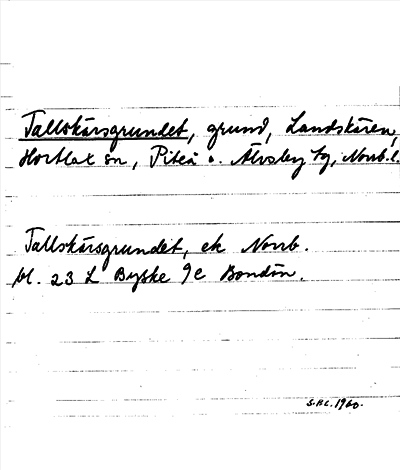 Tallskärsgrundet, grund, Landskären,
Hortlax sn, Piteå o. Älvsby tg, Norrb.l.
Tallskärsgrundet, ek Norrb.
bl. 23 L Byske 9c Bondön.
S.BL. 1960.